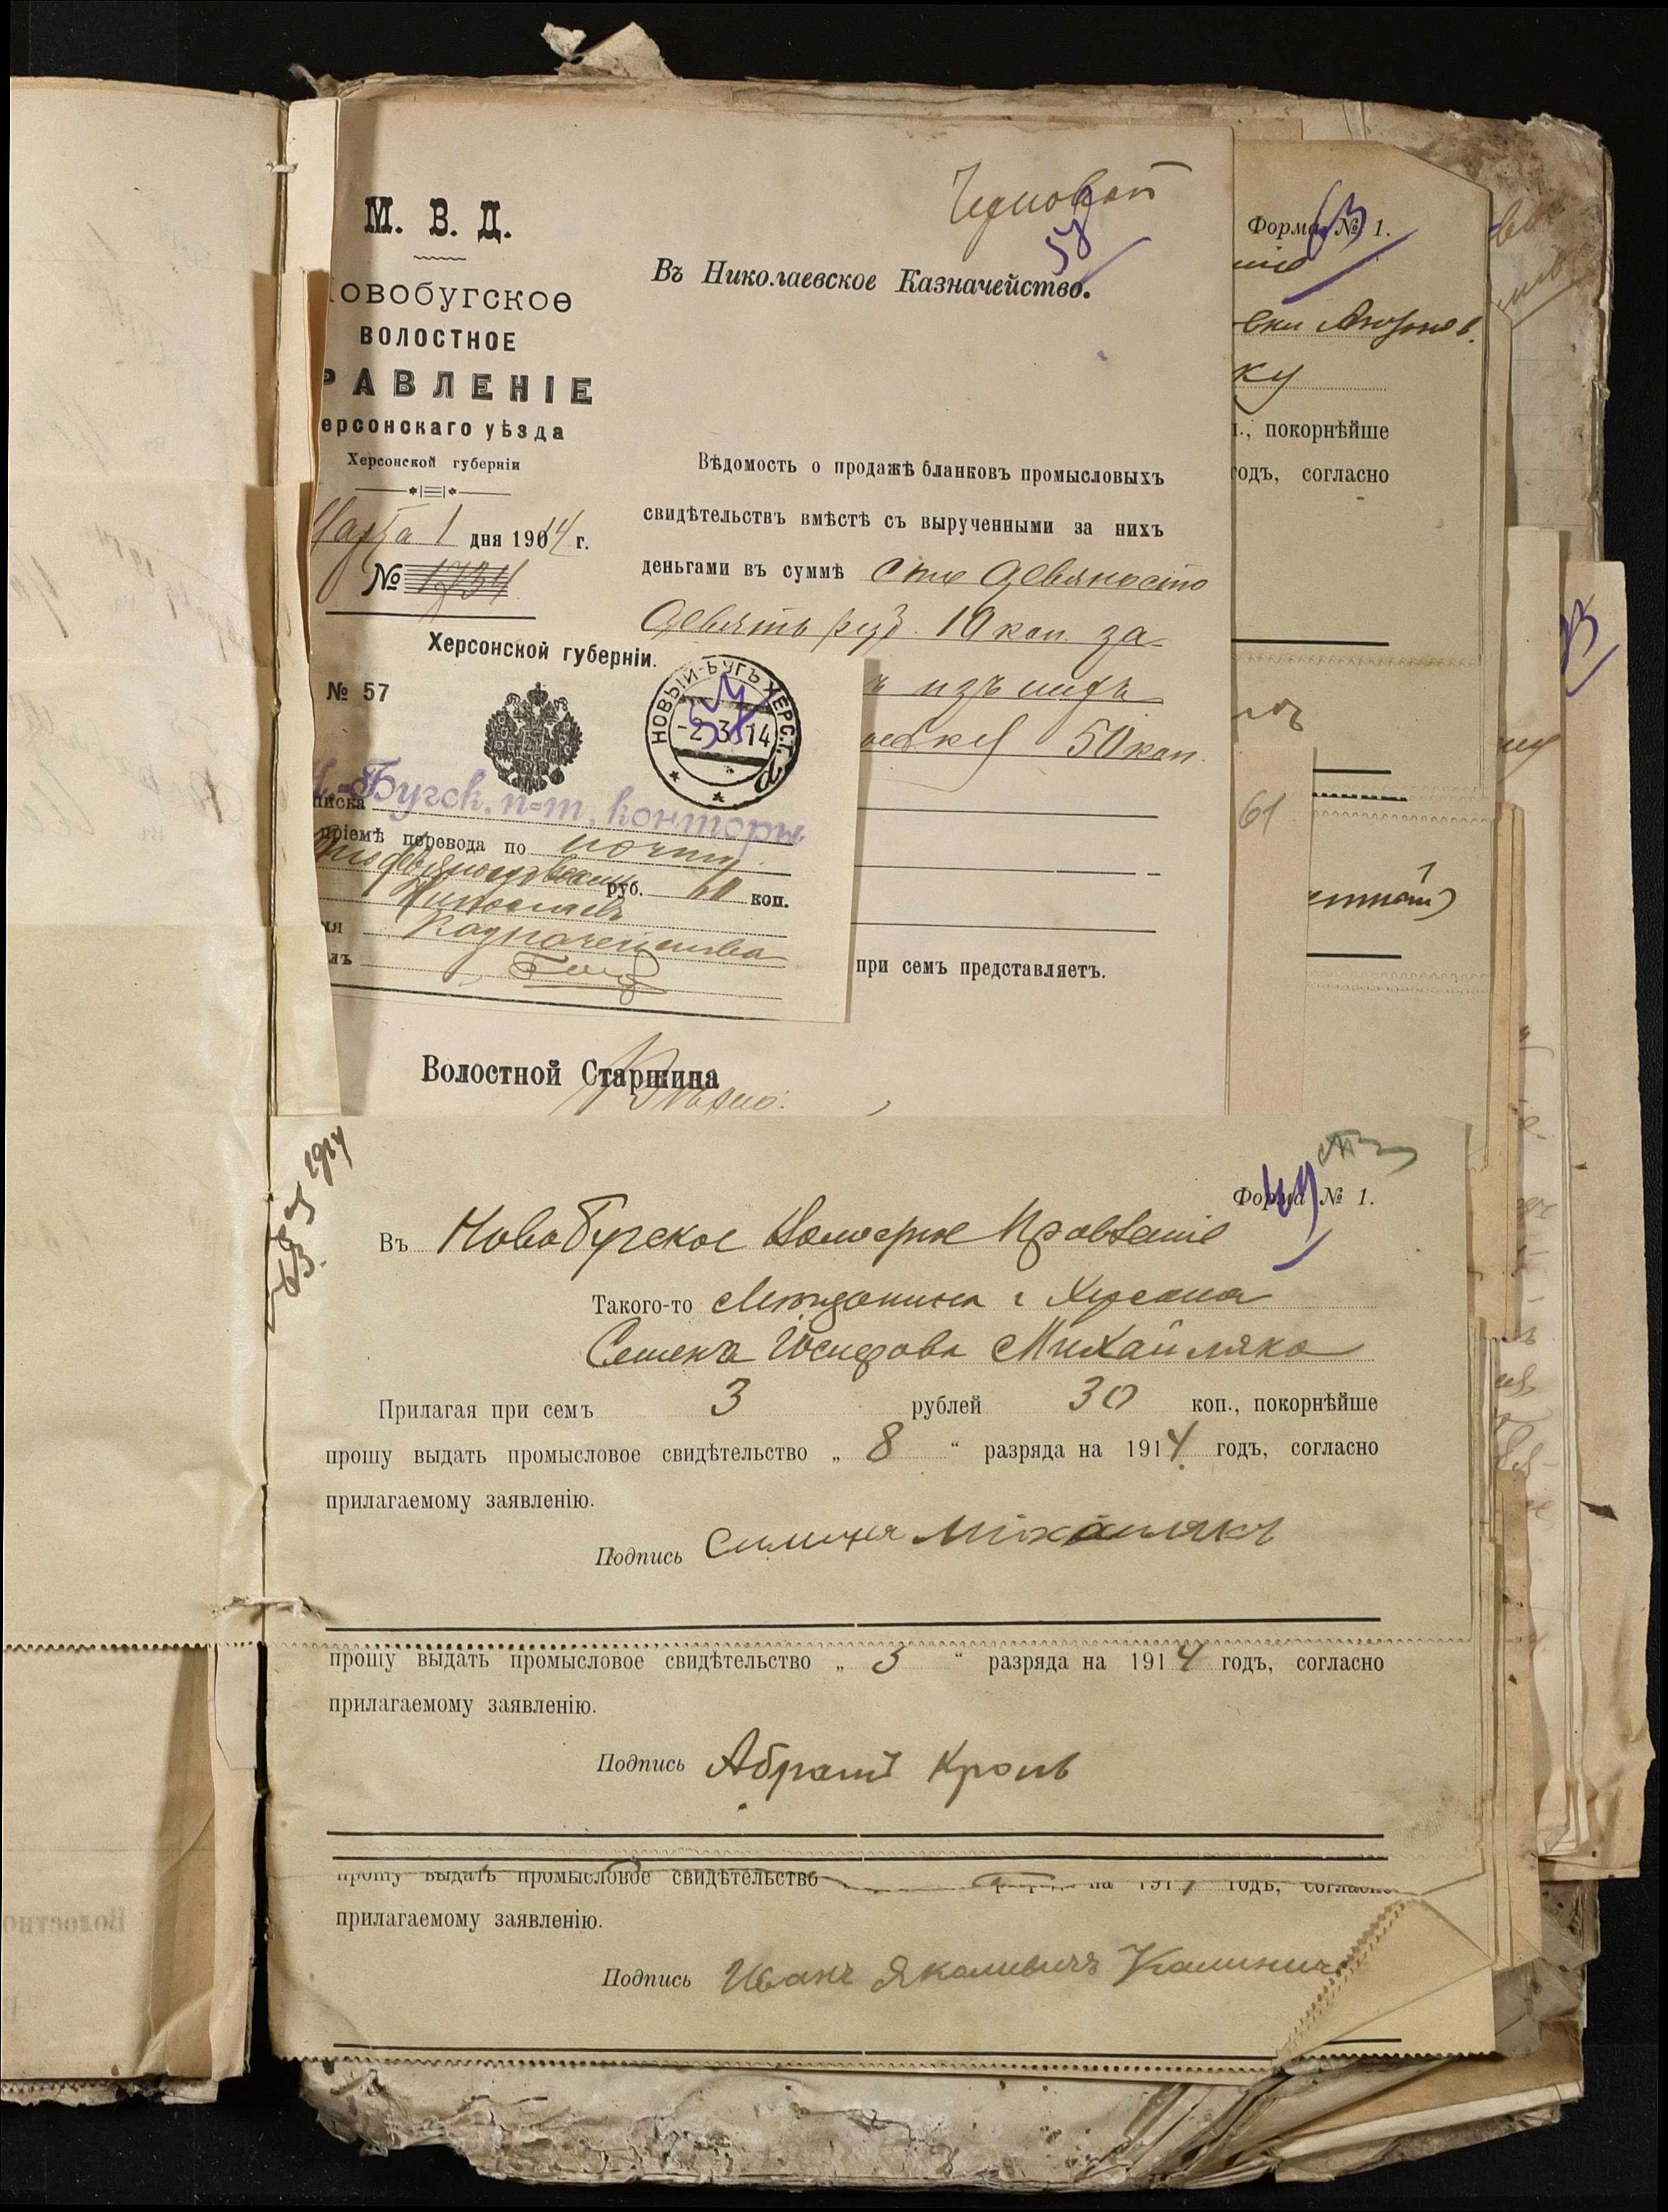 М. В. Д.
Новобугское
ВОЛОСТНОЕ
РАВЛЕНІЕ
ерсонскаго уѣзда
Херсонской губерніи
Марта 1 дня 1914 г.
№ 1734
Черновой
Въ Николаевское Казначейство.
Вѣдомость о продажѣ бланковъ промысловыхъ
свидѣтельствъ вмѣстѣ съ вырученными за нихъ
деньгами въ суммѣ сто девяносто
девять руб. 10 коп. за
ъ изъ нихъ
50 коп.
при семъ представляетъ.
Волостной Старшина
Херсонской губерніи.
№ 57
НОВЫЙ-БУГЪ ХЕРС.Г.
-2 3 14
Н.-Бугск. п=т. конторы
писка
пріемѣ перевода по почтѣ
сто девяносто восемь руб. 60 коп.
Николаевъ
ія Казначейства
лъ
Форма № 1.
ніе
ку
п., покорнѣйше
годъ, согласно
61
1914
Форма № 1.
49
Въ Новобугское Волостное Правленіе
Такого-то Мѣщанина г Херсона
Семена Іосифова Михайляка
Прилагая при семъ 3 рублей 30 коп., покорнѣйше
прошу выдать промысловое свидѣтельство „ 8 “ разряда на 1914 годъ, согласно
прилагаемому заявленію.
Подпись Симиня Михаилякъ
прошу выдать промысловое свидѣтельство „ 3 “ разряда на 1914 годъ, согласно
прилагаемому заявленію.
Подпись Абрамъ Кроль
прошу выдать промысловое свидѣтельство на 191 годъ, согласно
прилагаемому заявленію.
Подпись Иванъ Якаливичъ Калинич